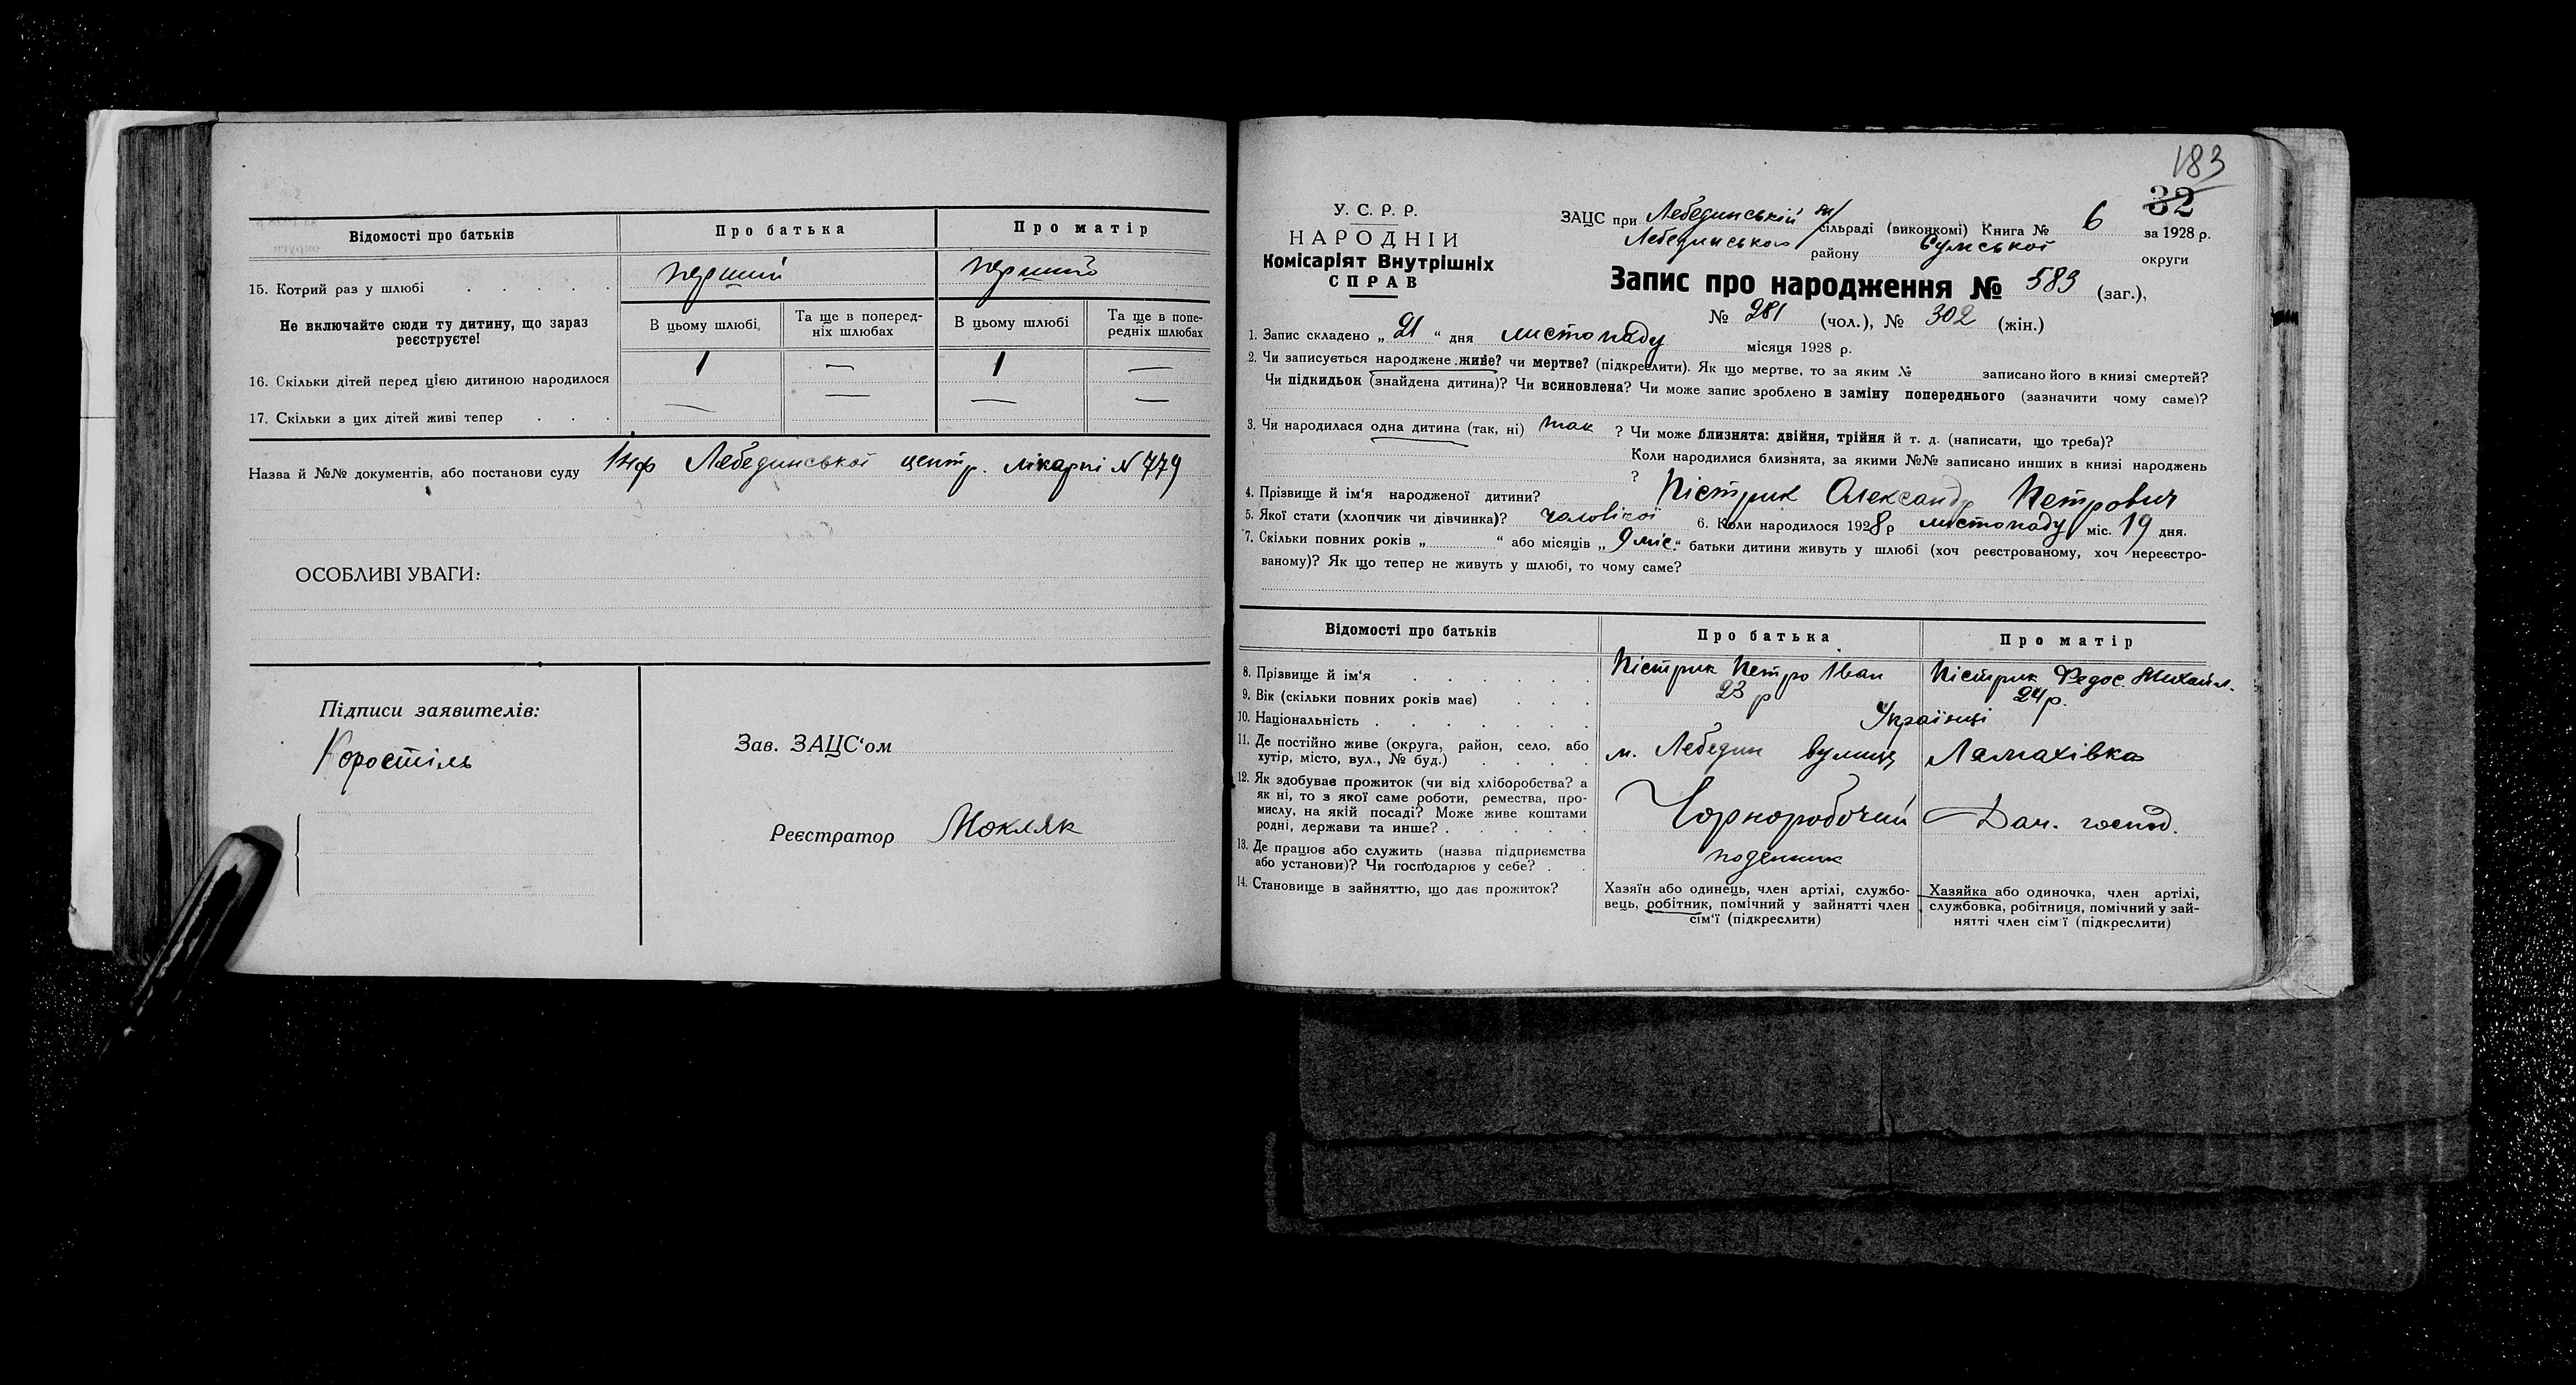 Відомості про батьків
Про батька
Про матір
15. Котрий раз у шлюбі
перший
перший
Не включайте сюди ту дитину, що зараз реєструєте!
В цьому шлюбі
Та ще в попередніх шлюбах
В цьому шлюбі
Та ще в попередніх шлюбах
16. Скільки дітей перед цією дитиною народилося
1 — 1 —
17. Скільки з цих дітей живі тепер
— — — —
Назва й №№ документів, або постанови суду Лебединської центр. лікарні N 779
ОСОБЛИВІ УВАГИ:
Підписи заявителів:
Коростіль
Зав. ЗАЦС'ом
Реєстратор Мокляк
183
32
У. С. Р. Р.
НАРОДНІЙ
Комісаріят Внутрішніх
СПРАВ
ЗАЦС при Лебединській м/сільраді (виконкомі) Книга № 6 за 1928 р.
Лебединського району Сумської округи
Запис про народження № 583 (заг.),
№ 281 (чол.), № 302 (жін.)
1. Запис складено „ 21 “ дня листопаду місяця 1928 р.
2. Чи записується народжене живе? чи мертве? (підкреслити). Як що мертве, то за яким № записано його в книзі смертей?
Чи підкидьок (знайдена дитина)? Чи всиновлена? Чи може запис зроблено в заміну попереднього (зазначити чому саме)?
3. Чи народилася одна дитина (так, ні) так ? Чи може близнята: двійня, трійня й т. д. (написати, що треба)?
Коли народилися близнята, за якими №№ записано инших в книзі народжень
?
4. Прізвище й ім'я народженої дитини? Пістрик Олександр Петрович
5. Якої стати (хлопчик чи дівчинка)? чоловічої 6. Коли народилося 1928 р листопаду міс. 19 дня.
7. Скільки повних років „ “ або місяців „ 9 міс. “ батьки дитини живуть у шлюбі (хоч реєстрованому, хоч нереєстро-
ваному)? Як що тепер не живуть у шлюбі, то чому саме?
Відомості про батьків
Про батька
Про матір
8. Прізвище й ім'я
Пістрик Петро Іван
Пістрик Федос. Михайл.
9. Вік (скільки повних років має)
23 р
24 р.
10. Національність
Українці
11. Де постійно живе (округа, район, село, або
хутір, місто, вул., № буд.)
м. Лебедин вулиця Ламахівка
12. Як здобуває прожиток (чи від хліборобства? а
як ні, то з якої саме роботи, ремества, про-
мислу, на якій посаді? Може живе коштами
родні, держави та инше?
Чорноробочий
Дом. господ.
13. Де працює або служить (назва підприємства
або установи)? Чи господарює у себе?
поденник
14. Становище в зайняттю, що дає прожиток?
Хазяїн або одинець, член артілі, службо-
вець, робітник, помічний у зайнятті член
сім'ї (підкреслити)
Хазяйка або одиночка, член артілі,
службовка, робітниця, помічний у зай-
нятті член сім'ї (підкреслити)